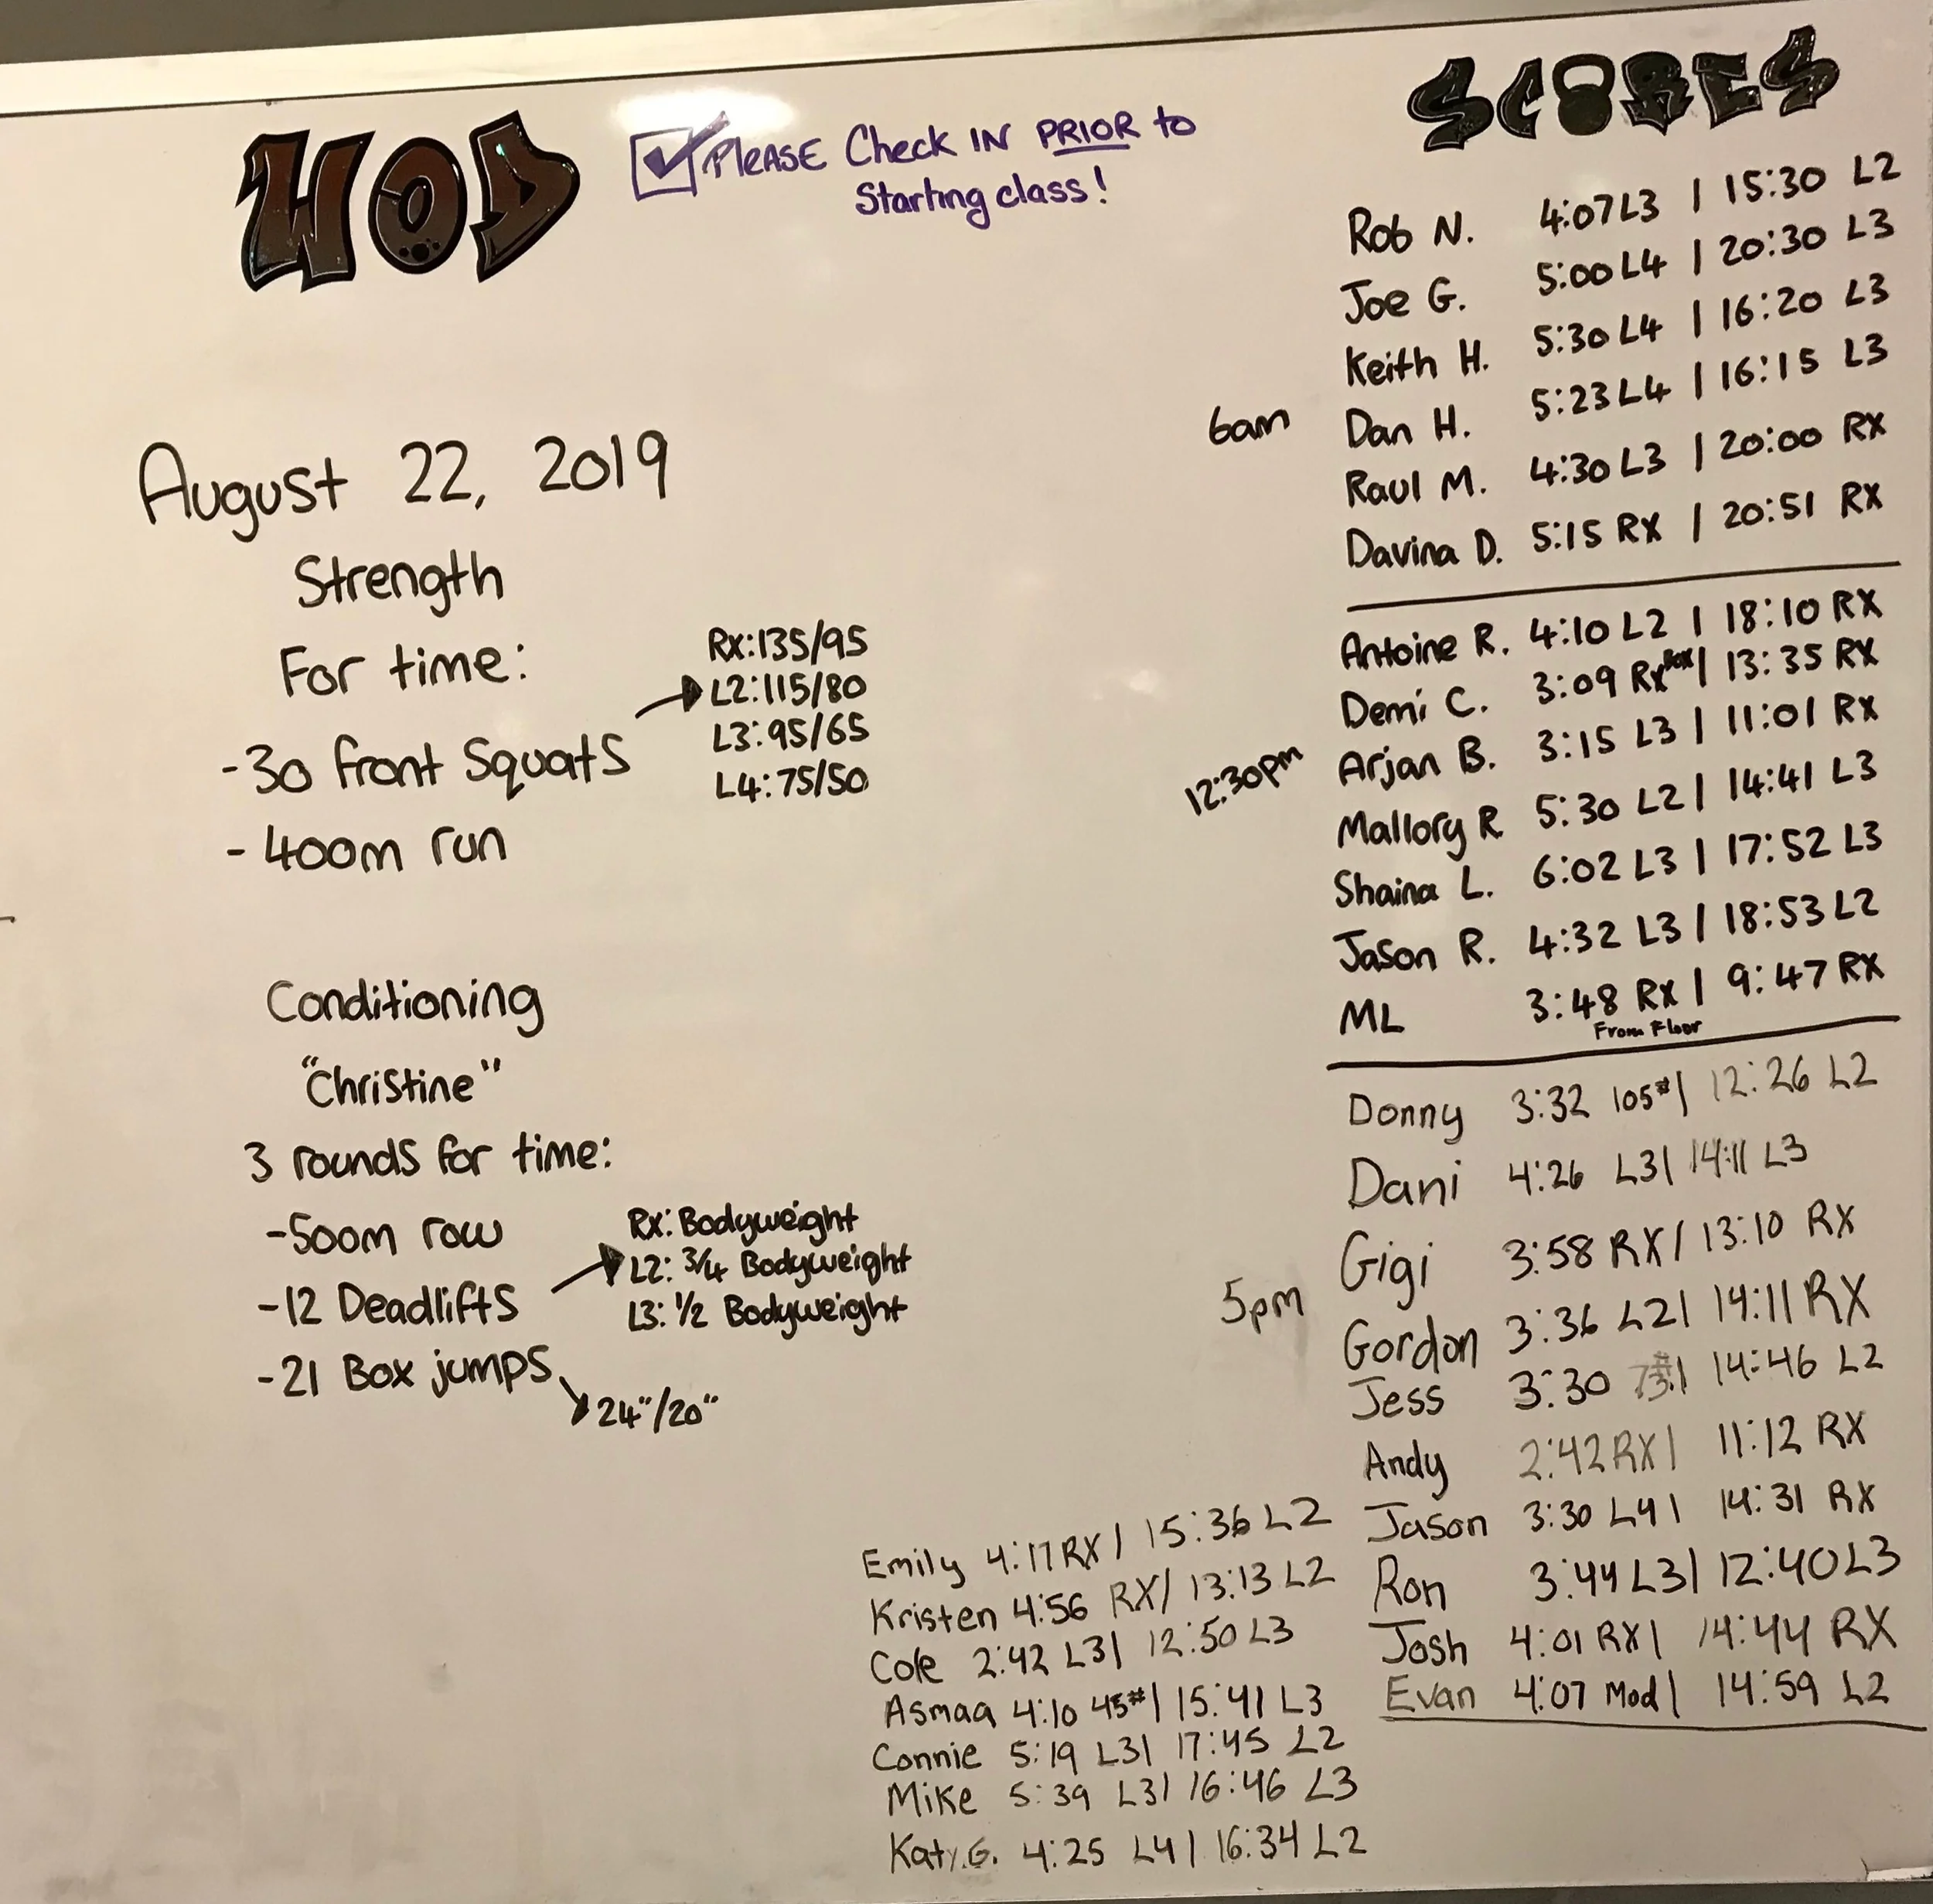 WOD
Please Check IN PRIOR to
Starting class!
August 22, 2019
Strength
For time:
-30 front squats
Rx:135/95
L2:115/80
L3:95/65
L4:75/50
-400m run
Conditioning
"Christine"
3 rounds for time:
-500m row
-12 Deadlifts
Rx: Bodyweight
L2: 3/4 Bodyweight
L3: 1/2 Bodyweight
-21 Box jumps
24"/20"
SCORES
6am
Rob N. 4:07 L3 | 15:30 L2
Joe G. 5:00 L4 | 20:30 L3
Keith H. 5:30 L4 | 16:20 L3
Dan H. 5:23 L4 | 16:15 L3
Raul M. 4:30 L3 | 20:00 RX
Davina D. 5:15 RX | 20:51 RX
12:30pm
Antoine R. 4:10 L2 | 18:10 RX
Demi C. 3:09 Rx | 13:35 RX
Arjan B. 3:15 L3 | 11:01 RX
Mallory R 5:30 L2 | 14:41 L3
Shaina L. 6:02 L3 | 17:52 L3
Jason R. 4:32 L3 | 18:53 L2
ML 3:48 RX | 9:47 RX
From Floor
5pm
Donny 3:32 105# | 12:26 L2
Dani 4:26 L3 | 14:11 L3
Gigi 3:58 RX / 13:10 RX
Gordon 3:36 L2 | 14:11 RX
Jess 3:30 73# | 14:46 L2
Andy 2:42 RX | 11:12 RX
Jason 3:30 L4 | 14:31 RX
Ron 3:44 L3 | 12:40 L3
Josh 4:01 RX | 14:44 RX
Evan 4:07 Mod | 14:59 L2
Emily 4:17 RX / 15:36 L2
Kristen 4:56 RX / 13:13 L2
Cole 2:42 L3 | 12:50 L3
Asmaa 4:10 45# | 15:41 L3
Connie 5:19 L3 | 17:45 L2
Mike 5:39 L3 | 16:46 L3
Katy.G. 4:25 L4 | 16:34 L2